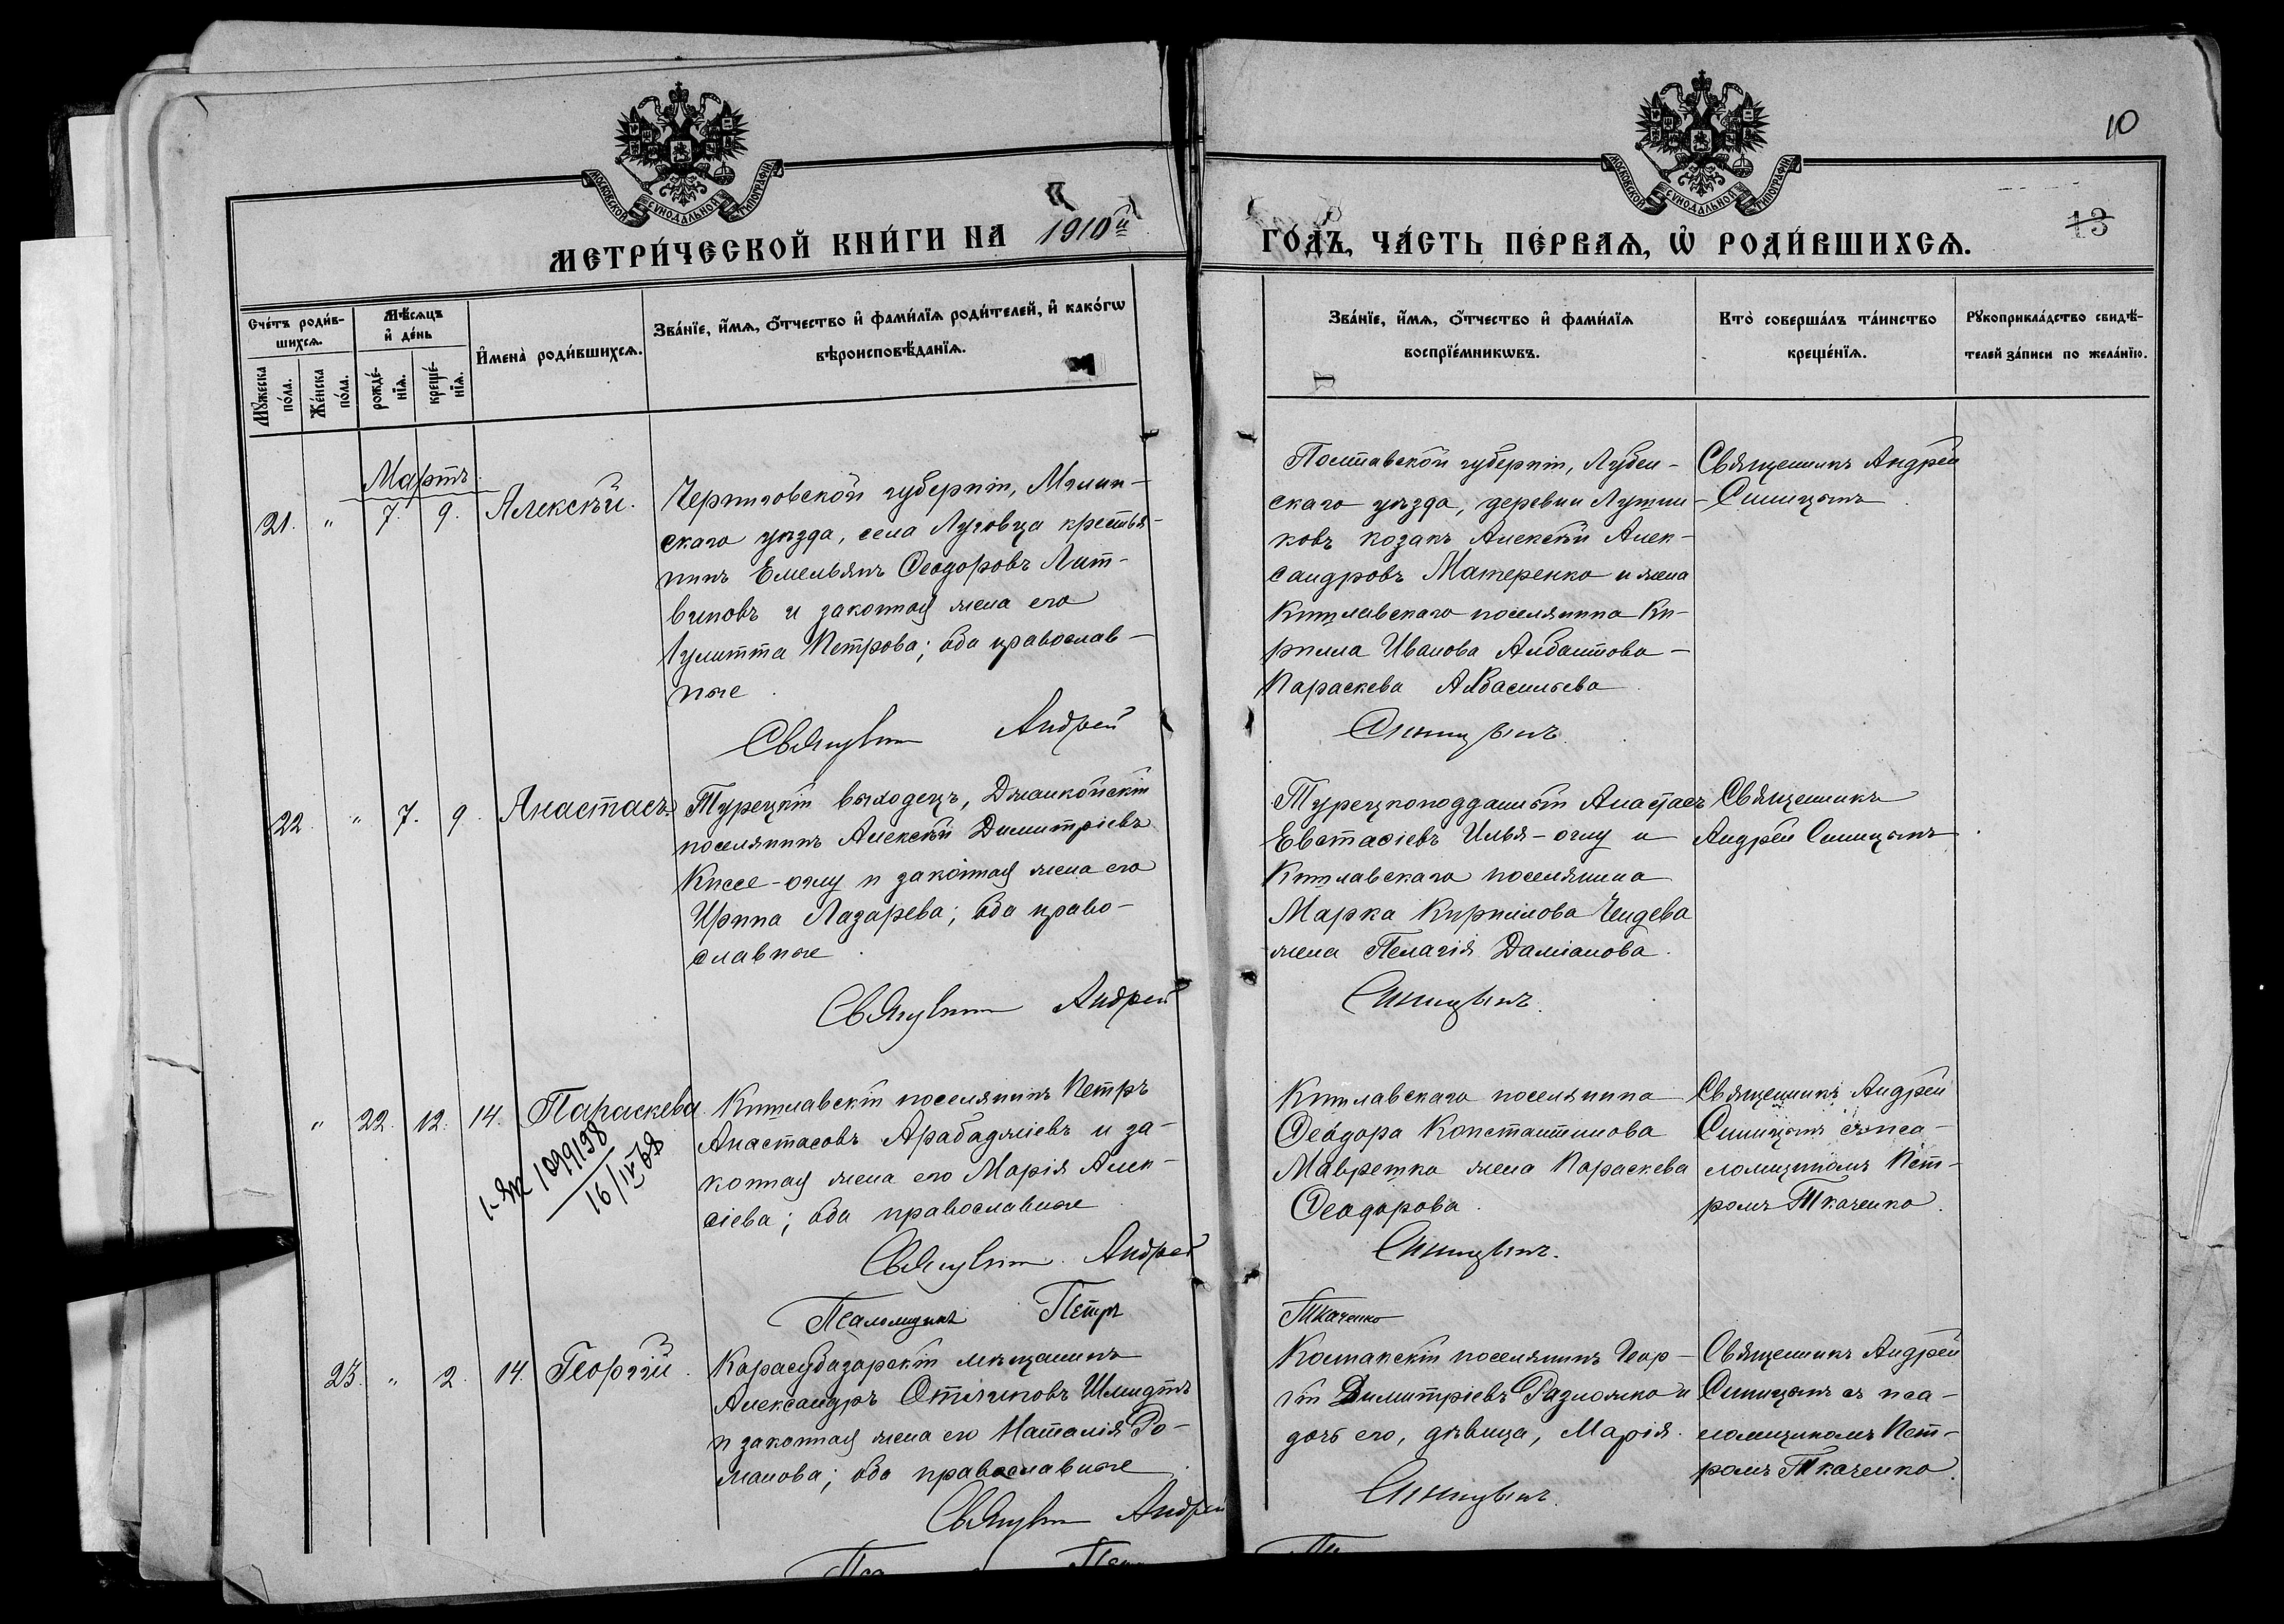 10
13
МОСКОВСКОЙ СѴНОДАЛЬНОЙ ТИПОГРАФІИ
МОСКОВСКОЙ СѴНОДАЛЬНОЙ ТИПОГРАФІИ
МЕТРИ́ЧЕСКОЙ КНИ́ГИ НА 1910й
ГО́ДЪ, ЧА́СТЬ ПЕ́РВАѦ, Ѡ҆ РОДИ́ВШИХСѦ.
Сче́тъ роди́в-
шихсѧ.
Мꙋ́жеска по́ла.
Же́нска по́ла.
Мѣ́сѧцъ и҆ де́нь
рожде́-нїѧ.
креще́-нїѧ.
И҆мена̀ роди́вшихсѧ.
Зва́нїе, и҆́мѧ, ѻ҆́тчество и҆ фами́лїѧ роди́телей, и҆ како́гѡ
вѣроисповѣ́данїѧ.
Зва́нїе, и҆́мѧ, ѻ҆́тчество и҆ фами́лїѧ
воспрїе́мникѡвъ.
Кто̀ соверша́лъ та́инство
креще́нїѧ.
Рꙋкоприкла́дство свидѣ́-
телей за́писи по жела́нїю.
Мартъ.
21. " 7. 9. Алексѣй.
Черниговской губерніи, Мглин-
скаго уѣзда, села Луговца крестья-
нинъ Емельянъ Ѳеодоровъ Лит-
виновъ и законная жена его
Іулитта Петрова; оба православ-
ные.
Священник Андрей
Полтавской губерніи, Лубен-
скаго уѣзда, деревни
ковъ козакъ Алексѣй Алек-
сандровъ Матеренко и жена
Китлавскаго поселянина Ки-
рилла Иванова Албантова -
Параскева Авасильева.
Синицынъ.
Священникъ Андрей
Синицынъ.
22. " 7. 9. Анастасъ.
Турецкій выходецъ, Джанкойскій
поселянинъ Алексѣй Димитріевъ
Киссе-оглу и законная жена его
Ирина Лазарева; оба право-
славные.
Священник Андрей
Турецкоподданный Анастасъ
Евстаѳіевъ Илья-оглу и
Китлавскаго поселянина
Марка Кириллова Чендева
жена Пелагія Даміанова.
Синицынъ.
Священникъ
Андрей Синицынъ.
" 22. 12. 14. Параскева.
1099198
16/IV 68
Китлавскій поселянинъ Петръ
Анастасовъ Арабаджіевъ и за-
конная жена его Марія Алек-
сіева; оба православные.
Священник Андрей
Псаломщикъ Петръ
Китлавскаго поселянина
Ѳеодора Константинова
Мавретка жена Параскева
Ѳеодорова.
Синицынъ.
Ткаченко
Священникъ Андрей
Синицынъ съ пса-
ломщикомъ Пет-
ромъ Ткаченко.
23. " 2. 14. Георгій.
Карасубазарскій мѣщанинъ
Александръ Шмидтъ
и законная жена его Наталія Ро-
манова; оба православные.
Священник Андрей
Геор-
гій Димитріевъ и
дочь его, дѣвица, Марія.
Синицынъ.
Священникъ Андрей
Синицынъ съ пса-
ломщикомъ Пет-
ромъ Ткаченко.